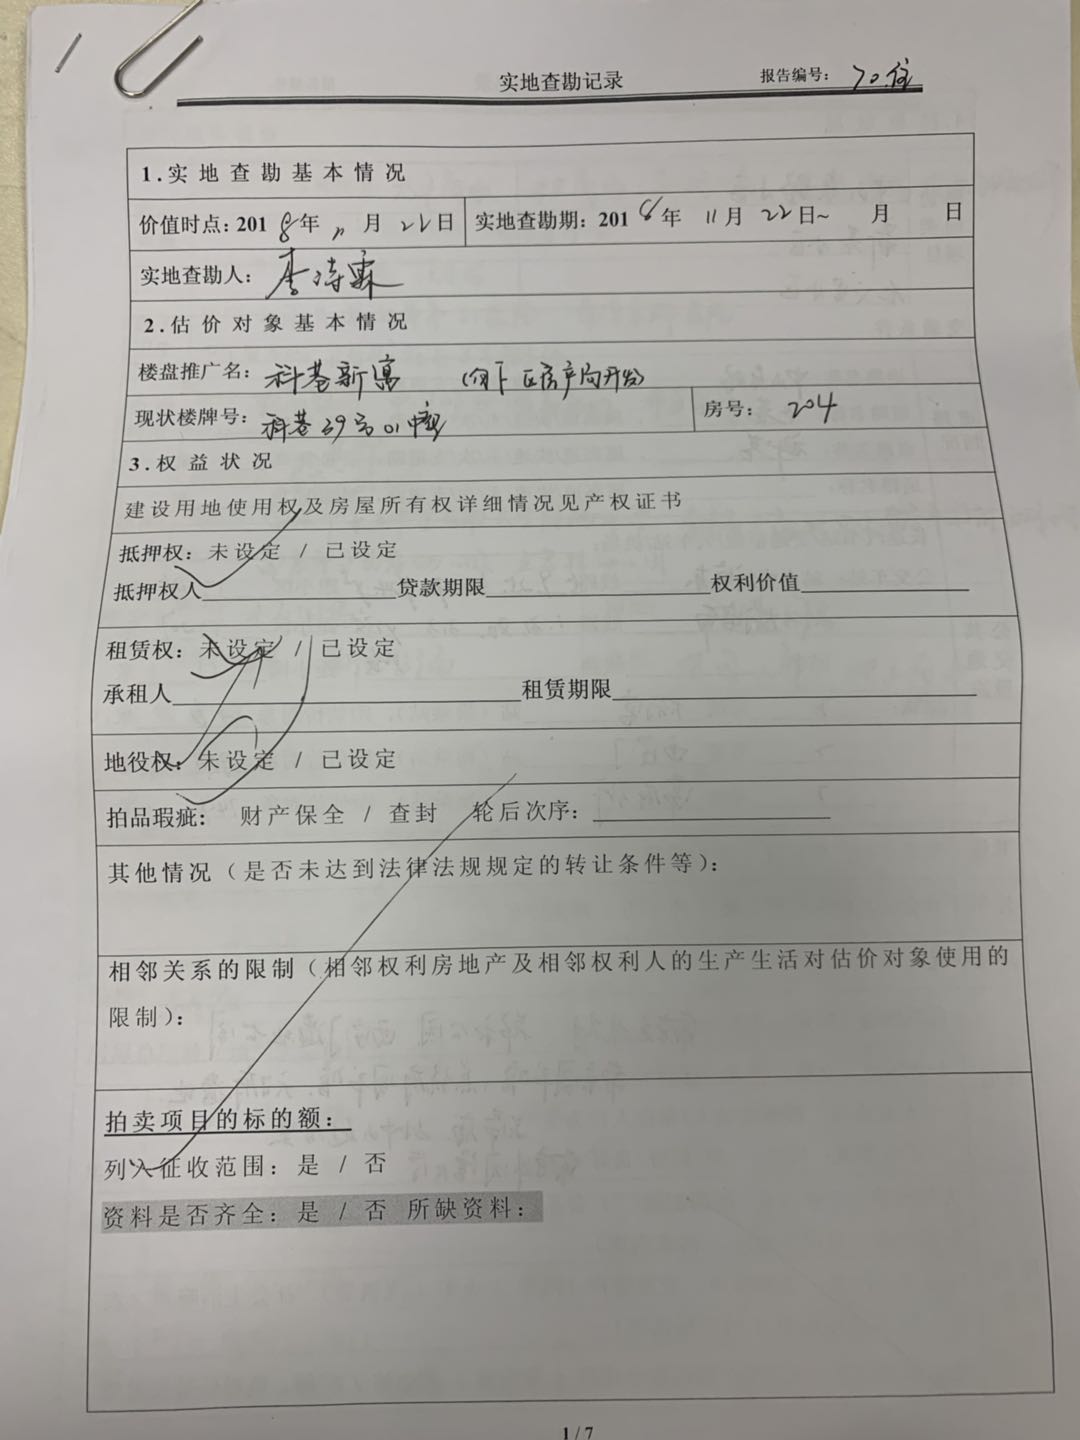 实地查勘记录 报告编号：70.住
1.实地查勘基本情况
价值时点：2018年11月22日 实地查勘期：2018年11月22日~ 月 日
实地查勘人：李诗霖
2.估价对象基本情况
楼盘推广名：科巷新寓 (白下区房产局开发)
现状楼牌号：科巷39号01幢 房号：204
3.权益状况
建设用地使用权及房屋所有权详细情况见产权证书
抵押权：未设定 / 已设定
抵押权人 贷款期限 权利价值
租赁权：未设定 / 已设定
承租人 租赁期限
地役权：未设定 / 已设定
拍品瑕疵： 财产保全 / 查封 轮后次序：
其他情况（是否未达到法律法规规定的转让条件等）：
相邻关系的限制（相邻权利房地产及相邻权利人的生产生活对估价对象使用的
限制）：
拍卖项目的标的额：
列入征收范围：是 / 否
资料是否齐全：是 / 否 所缺资料：
1 / 7